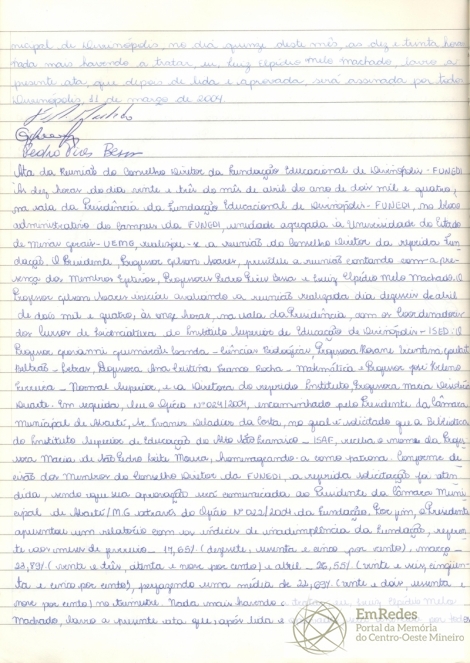 nicipal de Divinópolis, no dia quinze deste mês, as dez e trinta horas
Nada mais havendo a tratar, eu, Luiz Elpídio Melo Machado, lavro a
presente ata, que depois de lida e aprovada, será assinada por todos.
Divinópolis, 11 de março de 2004.
Pedro Pires Bessa
Ata da Reunião do Conselho Diretor da Fundação Educacional de Divinópolis - FUNEDI
Às dez horas do dia vinte e três do mês de abril do ano de dois mil e quatro,
na sala da Presidência da Fundação Educacional de Divinópolis - FUNEDI, no bloco
administrativo do campus da FUNEDI, unidade agregada à Universidade do Estado
de Minas Gerais - UEMG, realizou-se a reunião do Conselho Diretor da referida Fun-
dação. O Presidente, Professor Gilson Soares, presidiu a reunião contando com a pre-
sença dos Membros Efetivos, Professores Pedro Pires Bessa e Luiz Elpídio Melo Machado. O
Professor Gilson Soares iniciou avaliando a reunião realizada dia dezesseis de abril
de dois mil e quatro, às onze horas, na sala da Presidência, com os Coordenadores
dos Cursos de Licenciatura do Instituto Superior de Educação de Divinópolis - ISED: O
Professor Geovanni Guimarães Landa - Ciências Biológicas, Professora Rosane
- Letras, Professora Ana Cristina Franco Rocha - Matemática e Professor José Heleno
Ferreira - Normal Superior, e a Diretora do referido Instituto, Professora Maria
Duarte. Em seguida, leu o Ofício Nº 024/2004, encaminhado pelo Presidente da Câmara
Municipal de Abaeté, Sr. Deladier da Costa, no qual é solicitado que a Biblioteca
do Instituto Superior de Educação do Alto São Francisco - ISAF, receba o nome da Profes-
sora Maria de São Pedro Leite Moura, homenageando-a como patrona. Conforme de-
cisão dos Membros do Conselho Diretor da FUNEDI, a referida solicitação foi aten-
dida, sendo que sua aprovação será comunicada ao Presidente da Câmara Muni-
cipal de Abaeté/MG através do Ofício Nº 022/2004 da Fundação. Por fim, o Presidente
apresentou um relatório com os índices de inadimplência da Fundação, referen-
te aos meses de fevereiro - 17,65% (dezessete, sessenta e cinco por cento), março -
23,89% (vinte e três, oitenta e nove por cento) e abril - 26,55% (vinte e seis, cinquen-
ta e cinco por cento), perfazendo uma média de 22,69% (vinte e dois, sessenta e
nove por cento) no trimestre. Nada mais havendo a tratar, eu, Luiz Elpídio Melo
Machado, lavro a presente ata que, após lida e por todos
EmRedes
Portal da Memória
do Centro-Oeste Mineiro